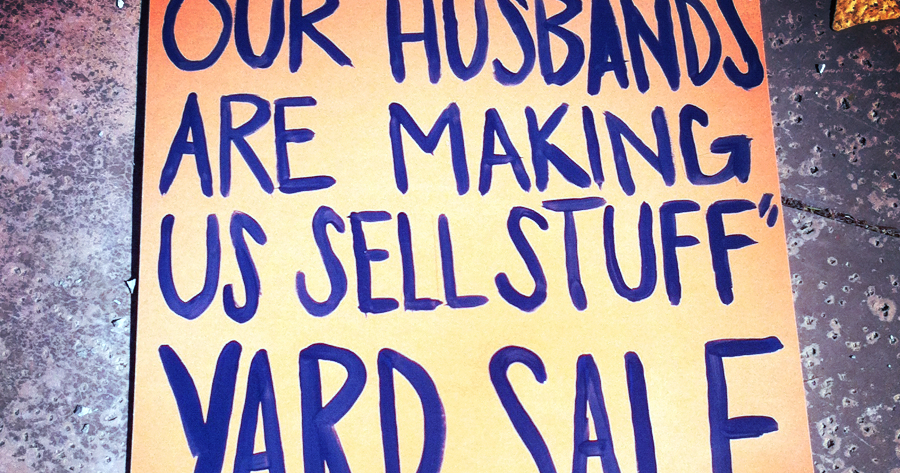 OUR HUSBANDS
ARE MAKING
US SELL STUFF"
YARD SALE